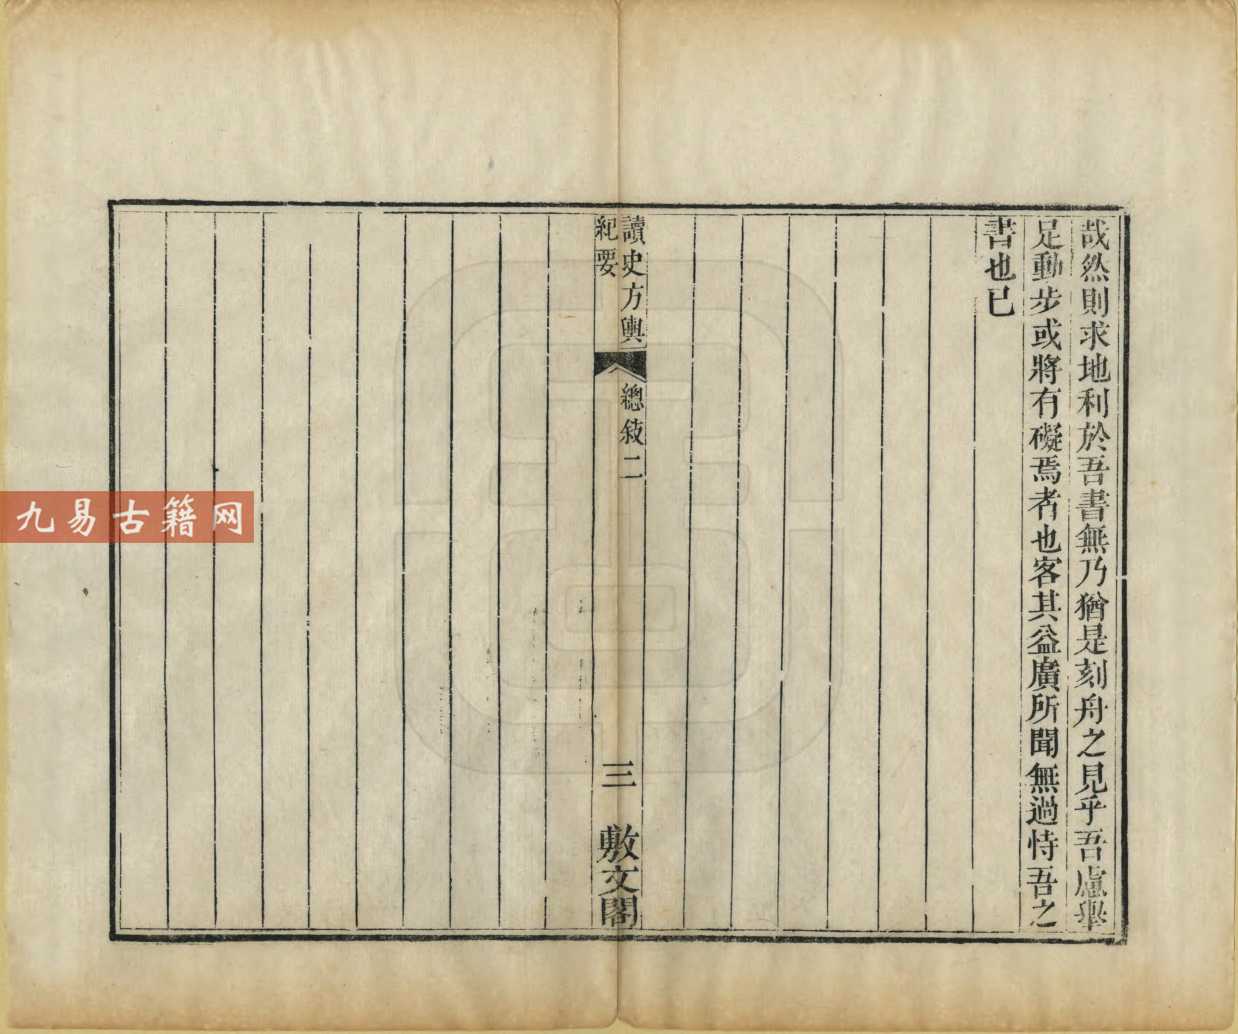 哉然則求地利於吾書無乃猶是刻舟之見乎吾慮舉
足動步或將有礙焉者也客其益廣所聞無過恃吾之
書也已
讀史方輿
紀要
總敍二
三
敷文閣
九易古籍网